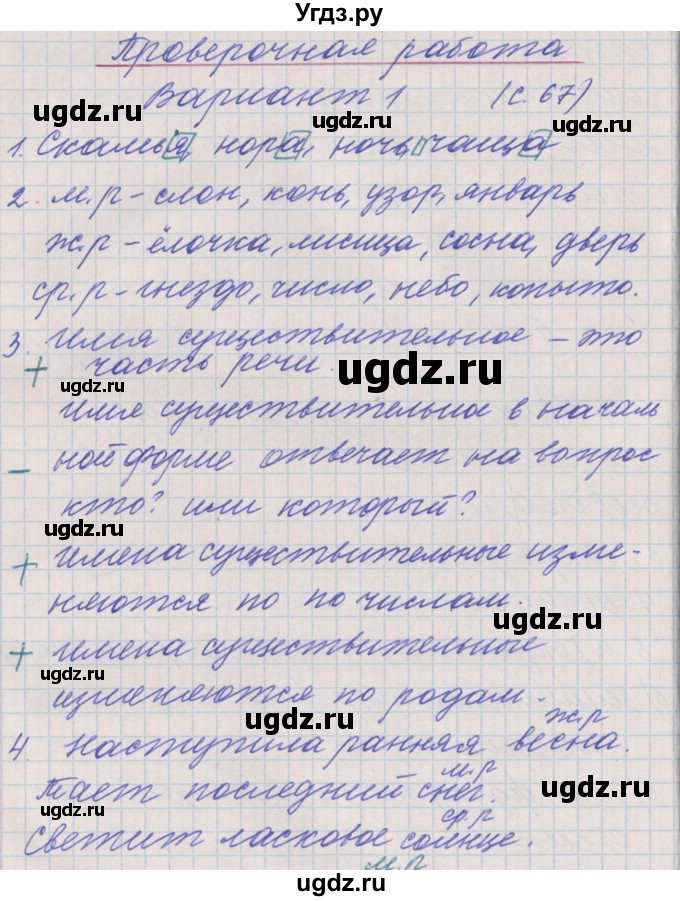 Угдз.ру
Проверочная работа
Вариант 1 (с. 67)
1. Скамья, нора, ночь, чаща
2. м.р – слон, конь, узор, январь
ж.р – ёлочка, лисица, сосна, дверь
ср.р – гнездо, число, небо, копыто.
3. Имя существительное – это
+ часть речи.
Имя существительное в началь
– ной форме отвечает на вопрос
кто? или который?
+ Имена существительные изме-
няются по по числам.
+ Имена существительные
изменяются по родам.
ж.р
4. Наступила ранняя весна.
м.р
Тает последний снег.
ср.р
Светит ласковое солнце.
м.р
ugdz.ru
ugdz.ru
ugdz.ru
ugdz.ru
ugdz.ru
ugdz.ru
ugdz.ru
ugdz.ru
ugdz.ru
ugdz.ru
ugdz.ru
ugdz.ru